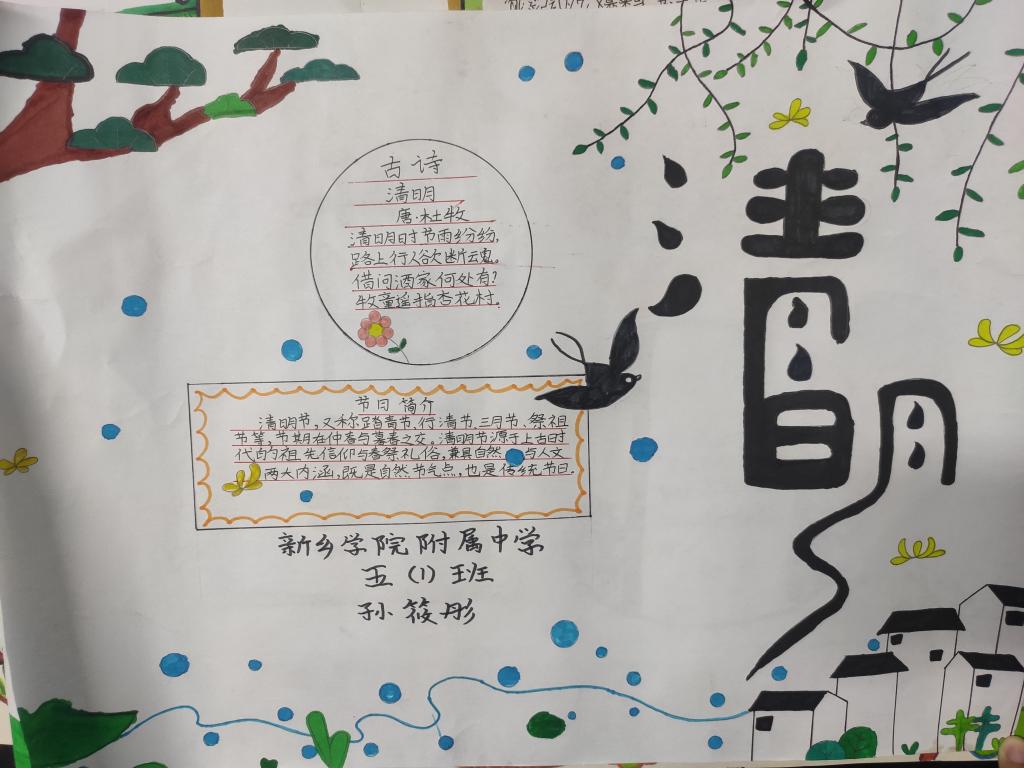 清明
古诗
清明
唐·杜牧
清明时节雨纷纷，
路上行人欲断魂。
借问酒家何处有？
牧童遥指杏花村．
节日 简介
清明节，又称踏青节、行清节、三月节、祭祖
节等，节期在仲春与暮春之交。清明节源于上古时
代的祖先信仰与春祭礼俗，兼具自然与人文
两大内涵，既是自然节气点，也是传统节日．
新乡学院附属中学
五（1）班
孙筱彤